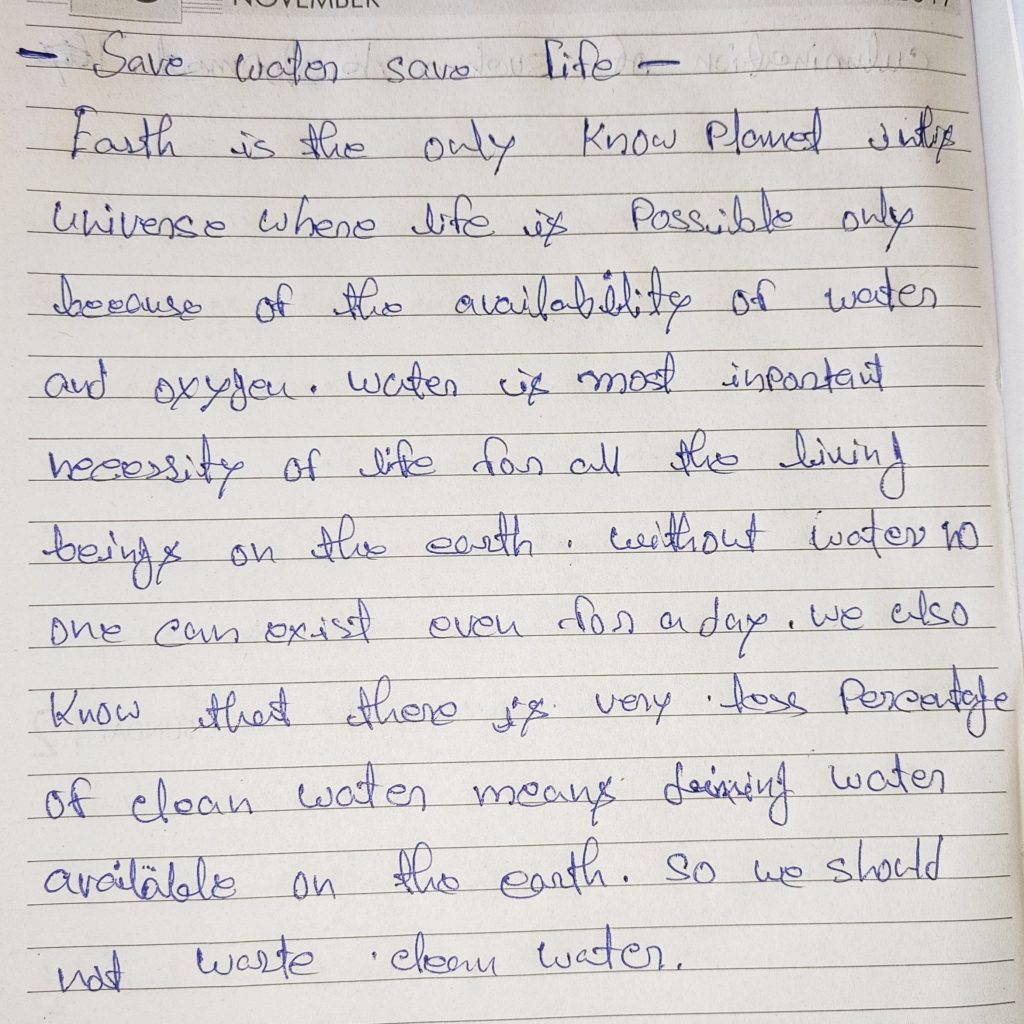 NOVEMBER
- Save water save life -
Earth is the only Know Planet in this
universe where life is Possible only
because of the availability of water
and oxygen. water is most inportant
necessity of life for all the living
beings on the earth. without water no
one can exist even for a day. we also
Know that there is very less Percentage
of clean water means drinking water
available on the earth. So we should
not waste clean water.